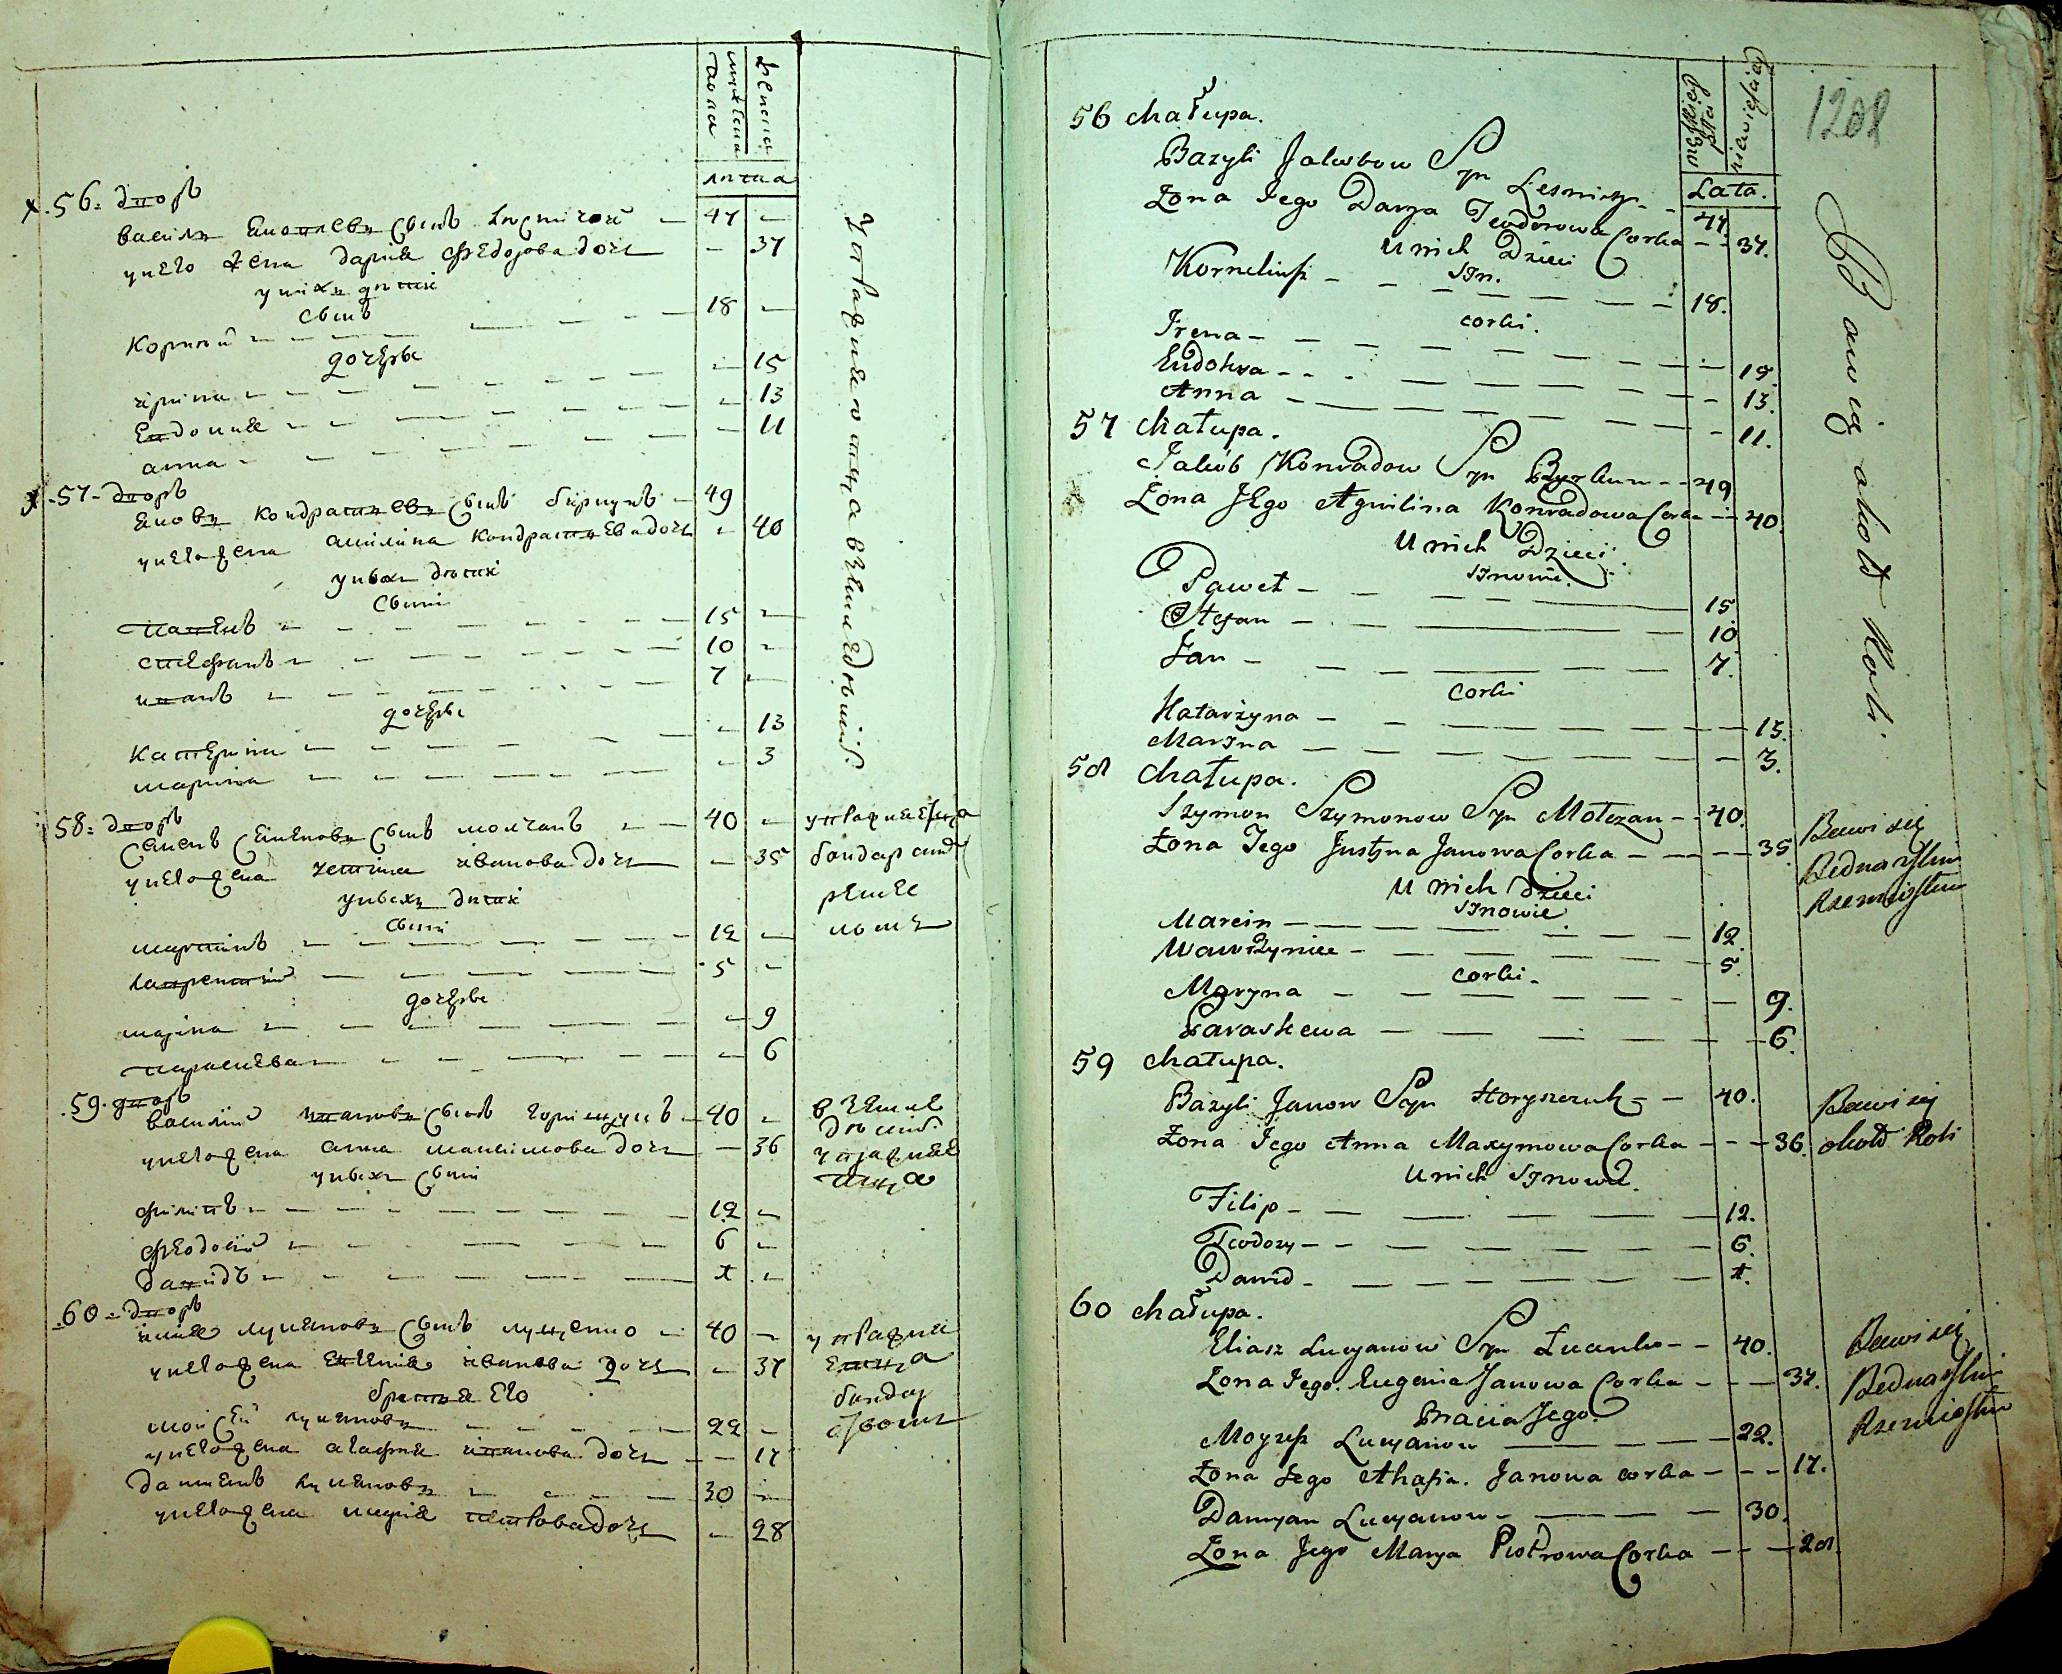 пола
мужеска
женска
лѣта
56: дворъ
василь Яковлевъ Сынъ Лѣсничой — 47 —
унего жена дарія Федорова дочь — 37
унихъ дѣти
Сынъ
Корнѣй — 18 —
дочери
ирина — 15
Евдокия — 13
анна — 11
57 дворъ
Яковъ Кондратьевъ Сынъ — 49
унего жена акилина Кондратьева дочь — 40
унихъ дѣти
Сыни
павелъ — 15 —
стефанъ — 10 —
иванъ — 7 —
дочери
Катерина — 13
марина — 3
58: дворъ
Семенъ Семеновъ Сынъ молчанъ — 40 —
унего жена устина иванова дочь — 35
унихъ дѣти
Сыни
мартинъ — 12 —
лаврентий — 5 —
дочери
марина — 9
параскева — 6
59. дворъ
василий ивановъ Сынъ — 40 —
унего жена анна максимова дочь — 36
унихъ Сыни
филипъ — 12 —
феодосий — 6 —
давидъ — 1 —
60 = дворъ
илия лукяновъ Сынъ луценко — 40 —
унего жена Евгения иванова дочь — 37
братья Его
мойсей лукяновъ — 22 —
унего жена агафия иванова дочь — 17
дамиянъ лукяновъ — 30 —
унего жена мария петрова дочь — 28
упражняютца вземледѣліи
упражняетца
бондарскимъ
ремес
ломъ
вземле
дѣлии
упражняе
тца
упражня
етца
бондар
ством
1208
męskiej
płci
niewieściej
Lata.
56 chałupa.
Bazyli Jakubow Syn Leśniczy - - 47.
Żona Jego Darya Teodorowa Corka - - 37.
U nich Dzieci
Syn.
Korneliusz - - - 18.
corki.
Irena - - - 15.
Eudokya - - - 13.
Anna - - - 11.
57 chałupa.
Jakób Konradow Syn - - 49
Żona Jego Agwilina Konradowa Corka - - 40.
U nich Dzieci
Synowie.
Paweł - - - 15
Stefan - - - 10
Jan - - - 7.
corki
Katarzyna - - - 13.
Maryna - - - 3.
58 chałupa.
Szymon Szymonow Syn Mołczan - - 40.
Żona Jego Justyna Janowa Corka - - - 35.
U nich dzieci
Synowie
Marcin - - - 12.
Wawrzyniec - - - 5.
corki.
Maryna - - - 9.
Paraskewa - - - 6.
59 chałupa.
Bazyli Janow Syn Horyszczuk - - 40.
Żona Jego Anna Maxymowa Corka - - - 36.
U nich Synowie.
Filip - - - 12.
Teodozy - - - 6.
Dawid - - - 1.
60 chałupa.
Eliasz Lucyanow Syn Łucenko - - 40.
Żona Jego Eugenia Janowa Corka - - - 37.
Bracia Jego
Moyzesz Lucyanow - - - 22.
Żona Jego Ahafia. Janowa corka - - - 17.
Damyan Lucyanow - - - 30.
Żona Jego Marya Piotrowa Corka - - - 28.
Bawią się około Roli.
Bawi się
Bednarskim
Rzemiosłem
Bawi się
około Roli
Bawi się
Bednarskim
Rzemiosłem